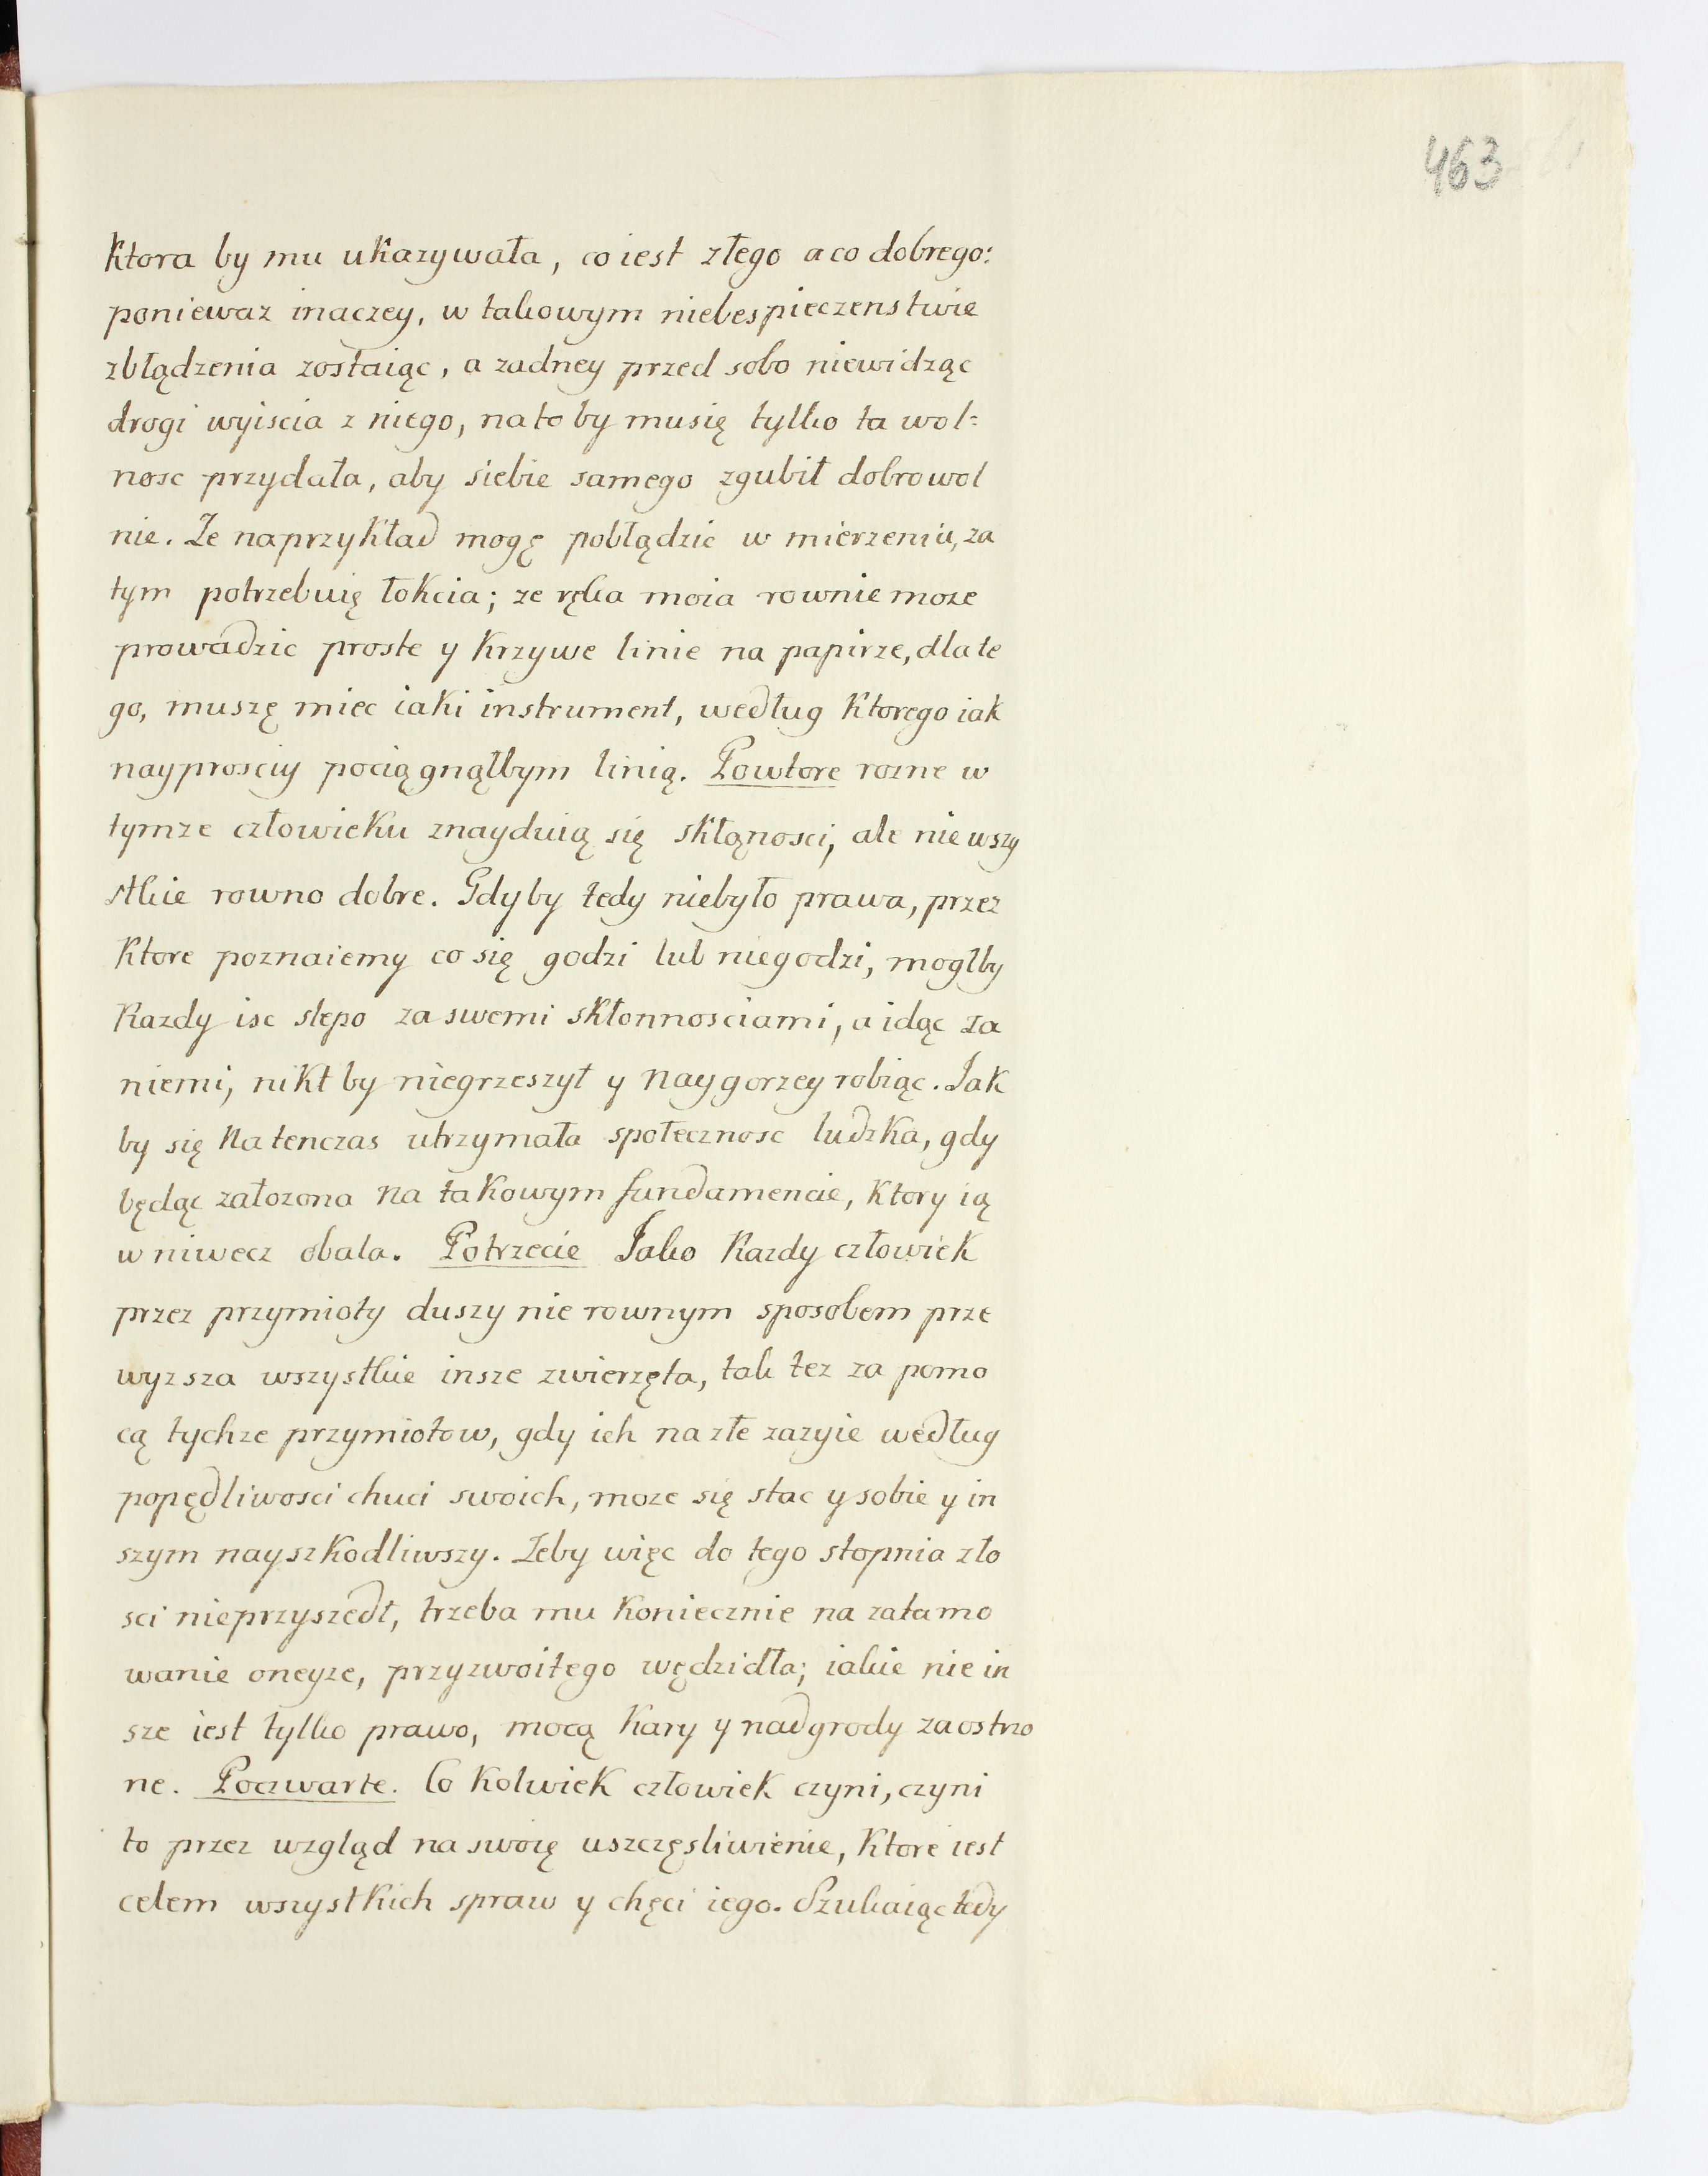 463
Ktora by mu ukazywała, co iest złego a co dobrego:
poniewaz inaczey, w takowym niebespieczenstwie
zbłądzenia zostaiąc, a zadney przed sobo niewidząc
drogi wyiscia z niego, nato by musię tylko ta wol:
nosc przydała, aby siebie samego zgubił dobrowol
nie. Ze naprzykład mogę pobłądzic w mierzeniu, za
tym potrzebuię łokcia; ze ręka moia rownie moze
prowadzic proste y krzywe linie na papirze, dla te
go, muszę miec iaki instrument, według ktorego iak
nayprosciy pociągnąłbym linią. Powtore rozne w
tymze człowieku znayduią się skłąnosci, ale nie wszy
stkie rowno dobre. Gdyby tedy niebyło prawa, przez
ktore poznaiemy co się godzi lub niegodzi, mogłby
kazdy isc slepo za swemi skłonnosciami, a idąc za
niemi, nikt by niegrzeszył y naygorzey robiąc. Jak
by się natenczas utrzymała społecznosc ludzka, gdy
będąc załozona na takowym fundamencie, ktory ią
w niwecz obala. Potrzecie Jako kazdy człowiek
przez przymioty duszy nie rownym sposobem prze
wyzsza wszystkie insze zwierzęta, tak tez za pomo
cą tychze przymiotow, gdy ich na złe zazyie według
popędliwosci chuci swoich, moze się stac y sobie y in
szym nayszkodliwszy. Zeby więc do tego stopnia zło
sci nieprzyszedł, trzeba mu koniecznie na zatamo
wanie oneyze, przyzwoitego wędzidła; iakie nie in
sze iest tylko prawo, mocą kary y nadgrody zaostrzo
ne. Poczwarte. Co kolwiek człowiek czyni, czyni
to przez wzgląd na swoię uszczęsliwienie, ktore iest
celem wszystkich spraw y chęci iego. Szukaiąc tedy